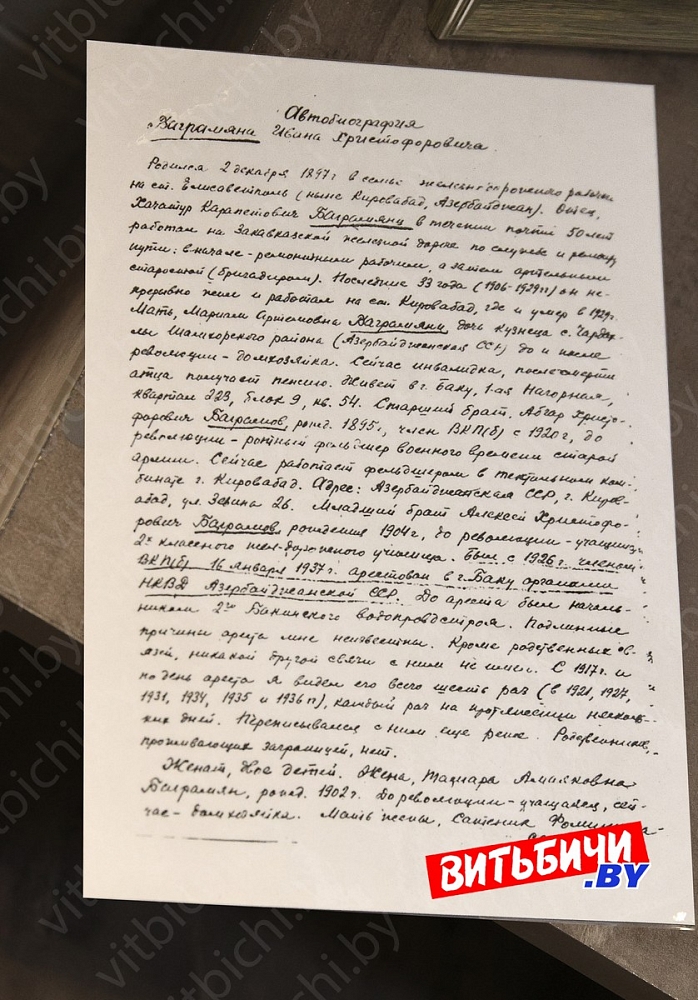 Автобиография
Баграмяна Ивана Христофоровича.
Родился 2 декабря 1897г в семье железнодорожного рабочего
на ст. Елисаветполь (ныне Кировабад, Азербайджан). Отец,
Хачатур Карапетович Баграмянц в течении почти 50 лет
работал на Закавказской железной дороге по службе и ремонту
пути: вначале - ремонтным рабочим, а затем артельным
старостой (бригадиром). Последние 33 года (1906-1929гг) он не-
прерывно жил и работал на ст. Кировабад, где и умер в 1929г.
Мать, Мариам Артемовна Баграмянц, дочь кузнеца с. Чардах-
лы Шамхорского района (Азербайджанская ССР) до и после
революции - домхозяйка. Сейчас инвалидка, после смерти
отца получает пенсию. Живет в г. Баку, 1-ая Нагорная,
квартал 223, блок 9, кв. 54. Старший брат. Абгар Христо-
форович Баграмов, рожд. 1895г, член ВКП(б) с 1920г, до
революции - ротный фельдшер военного времени старой
армии. Сейчас работает фельдшером в текстильном ком-
бинате г. Кировабад. Адрес: Азербайджанская ССР, г. Киров-
абад, ул. Зевина 26. Младший брат Алексей Христофо-
рович Баграмов, рождения 1904г, до революции - учащийся
2х классного жел-дорожного училища. Был с 1926г. членом
ВКП(б) 16 января 1937г. арестован в г. Баку органами
НКВД Азербайджанской ССР. До ареста был началь-
ником 2го Бакинского водопроводстроя. Подлинные
причины ареста мне неизвестны. Кроме родственных св-
язей, никакой другой связи с ним не имел. С 1917г. и
по день ареста я видел его всего шесть раз (в 1921, 1927,
1931, 1934, 1935 и 1936 гг), каждый раз на протяжении несколь-
ких дней. Переписывался с ним еще реже. Родственников,
проживающих заграницей, нет.
Женат, двое детей. Жена, Тамара Амаяковна
Баграмян, рожд. 1902г. До революции - учащаяся, сей-
час - домхозяйка. Мать жены, Сатеник
ВИТЬБИЧИ
.BY
vitbichi.by